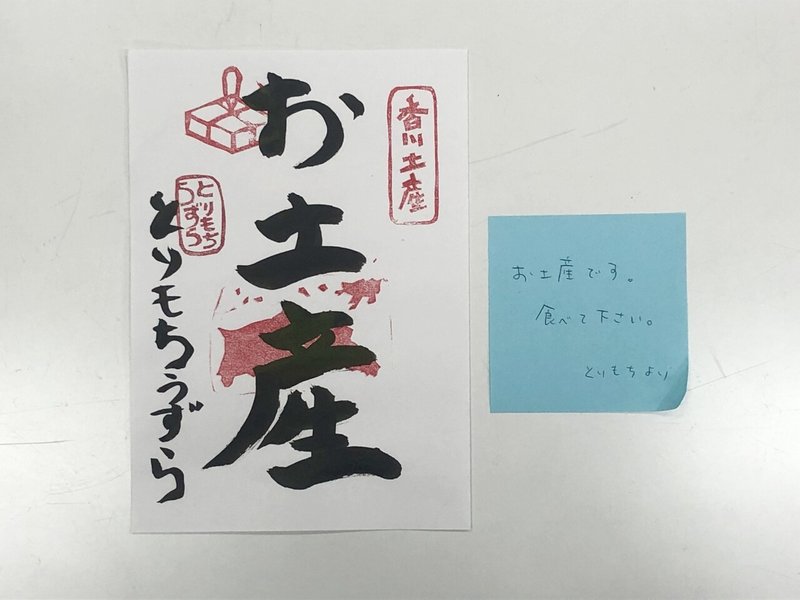 香川土産
お土産
とりもち
うずら
とりもちうずら
お土産です。
食べて下さい。
とりもちより